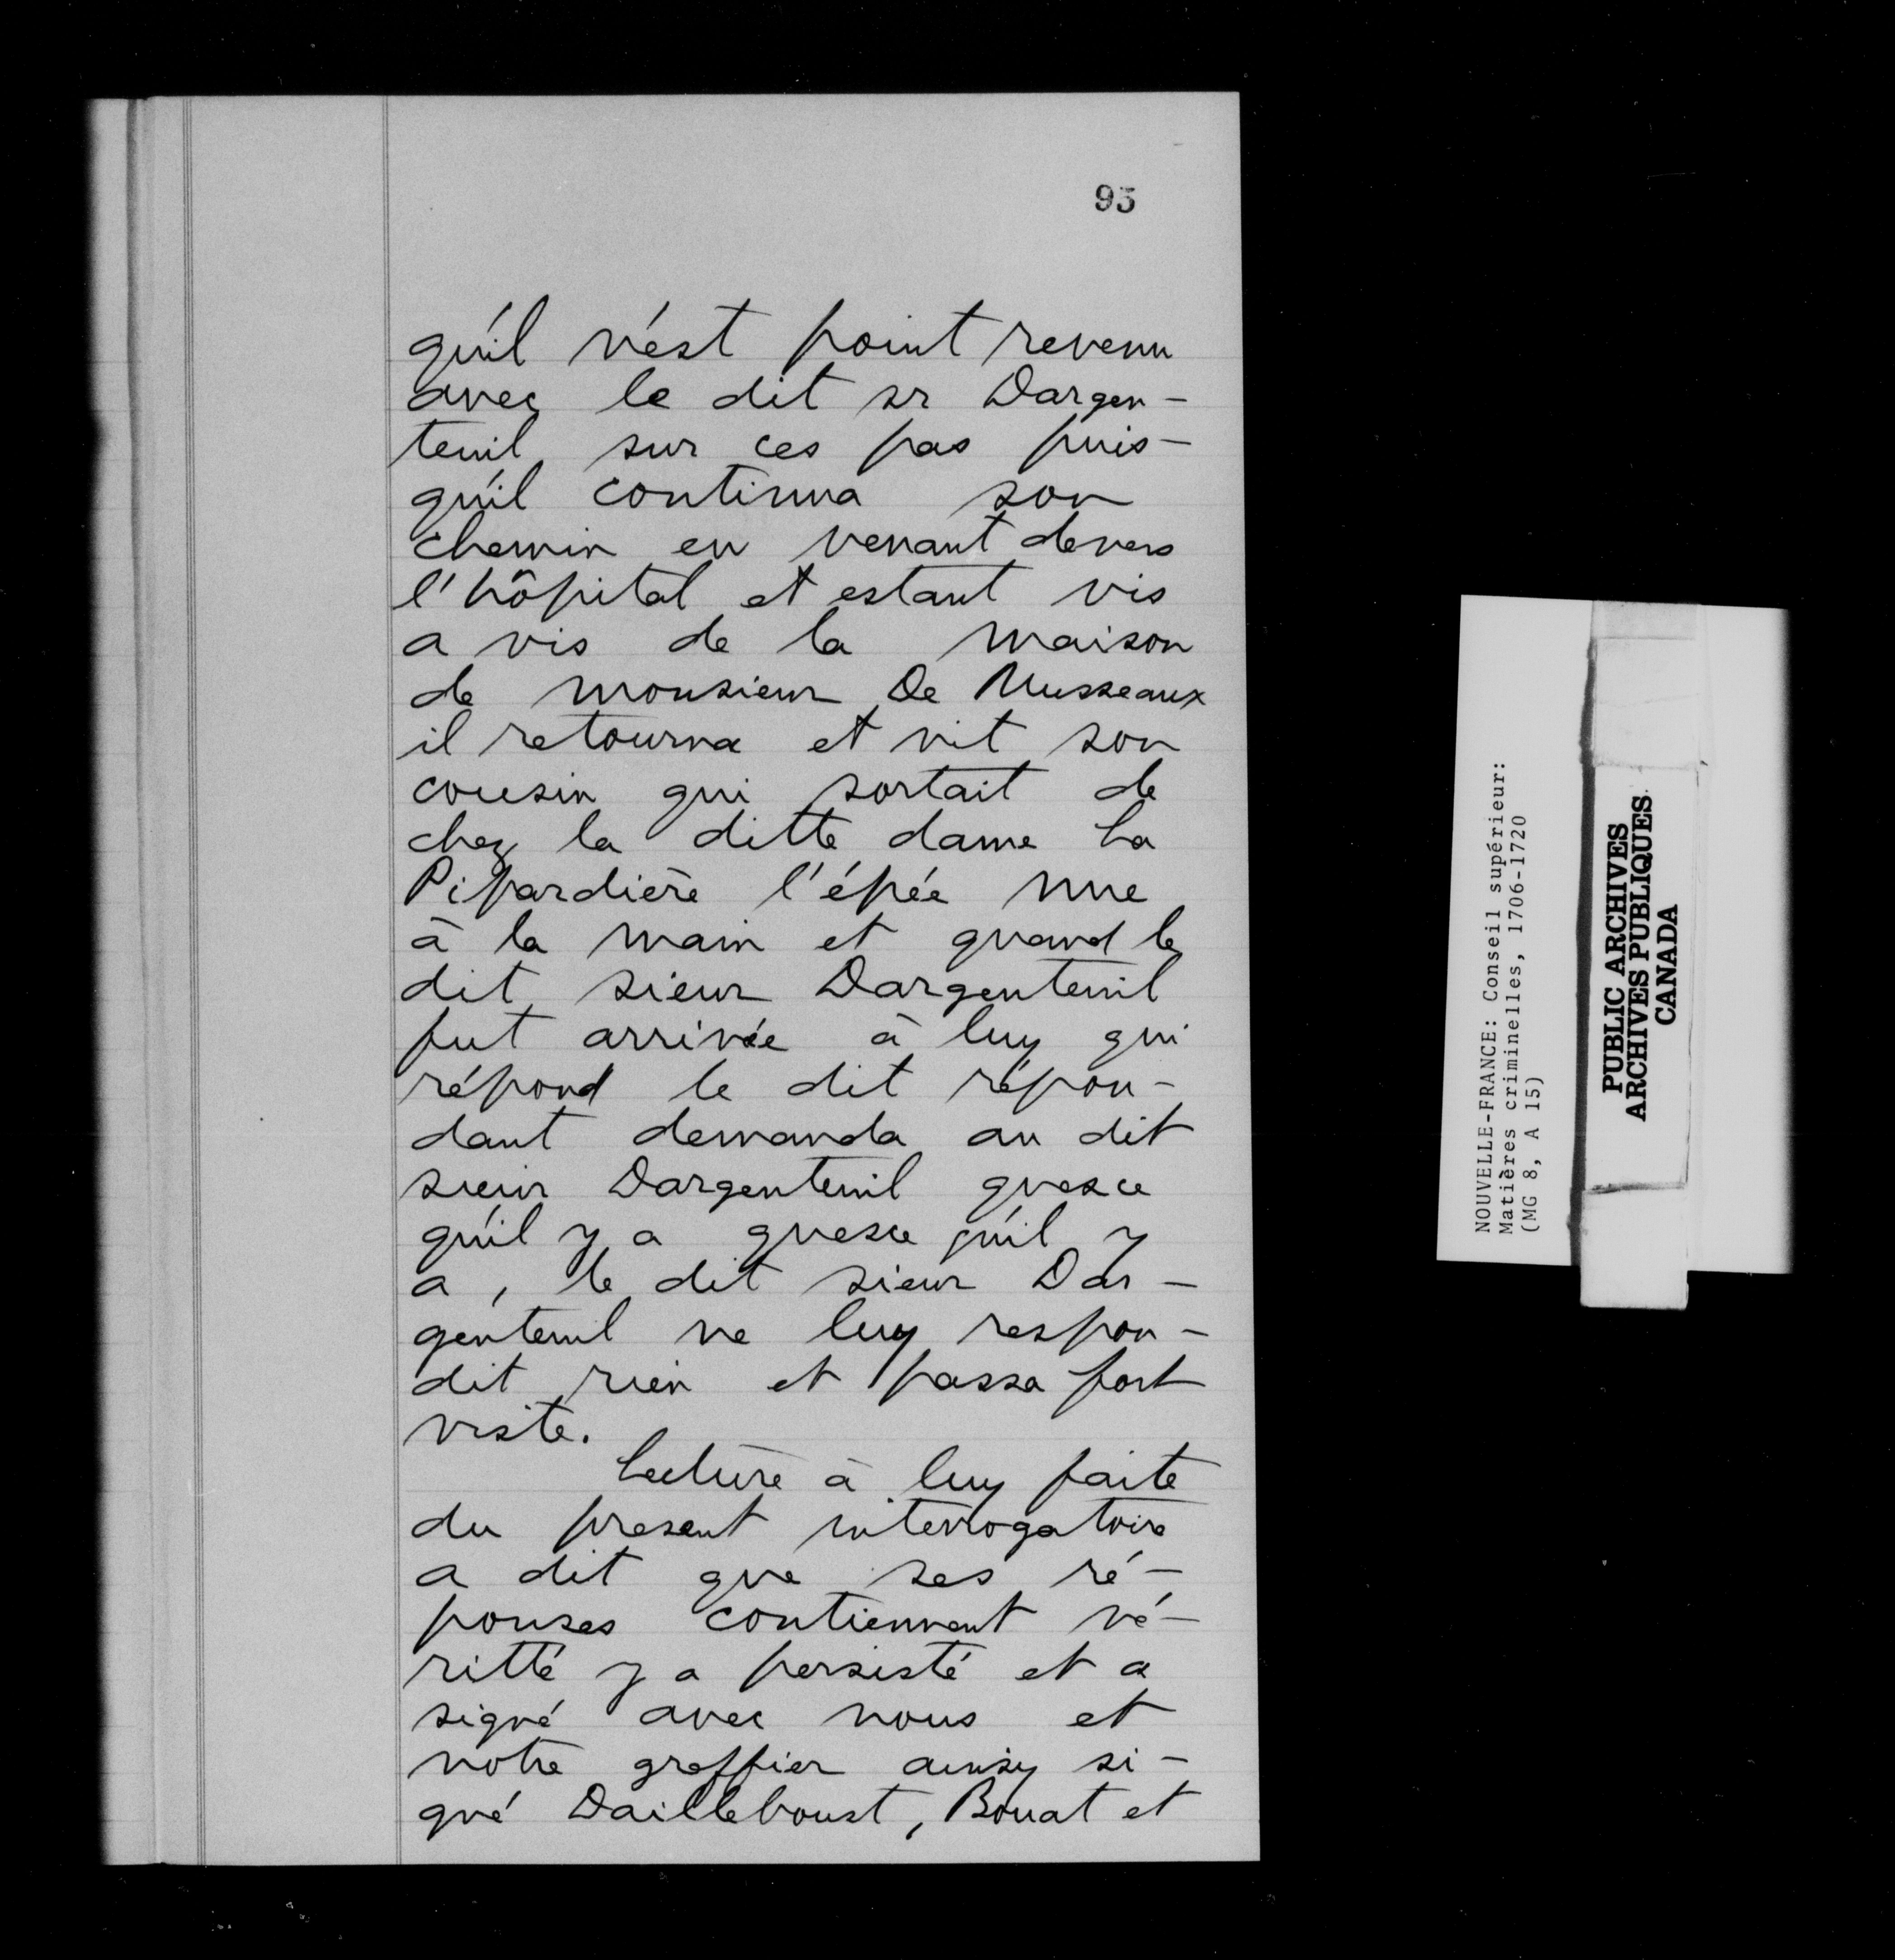 95
qu'il n'est point revenu
avec le dit sr Dargen-
teuil sur ces pas puis-
qu'il continua son
chemin en venant devers
l'hôpital et estant vis
a vis de la maison
de monsieur De Musseaux
il retourna et vit son
cousin qui sortait de
chez la ditte dame La
Pipardière l'épée nue
à la main et quand le
dit sieur Dargenteuil
fut arrivée à luy qui
répond le dit répon-
dant demanda au dit
sieur Dargenteuil quesce
qu'il y a quesce qu'il y
a, le dit sieur Dar-
genteuil ne luy respon-
dit rien et passa fort
viste.
Lecture à luy faite
du present interrogatoire
a dit que ses ré-
ponses contiennent vé-
ritté y a persisté et a
signé avec nous et
notre greffier ainsy si-
gné Dailleboust, Bouat et
NOUVELLE-FRANCE: Conseil supérieur:
Matières criminelles, 1706-1720
(MG 8, A 15)
PUBLIC ARCHIVES
ARCHIVES PUBLIQUES
CANADA